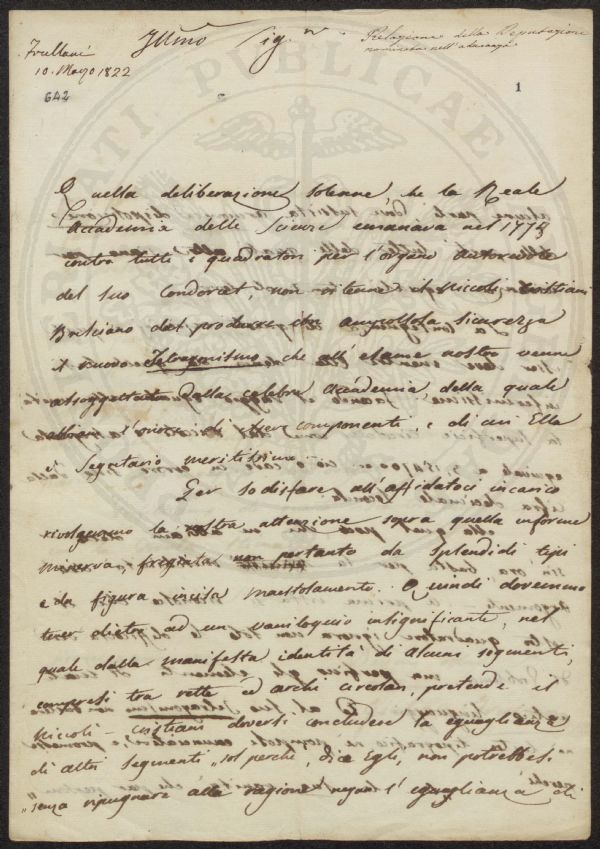 Frullani
10. Marzo 1822
642
Illmo Sig.r
Relazione della Deputazione
nominata nell'adunanza
1
Quella deliberazione solenne, che la Reale
Accademia delle Scienze emanava nel 1775
contro tutti i quadratori per l'organo autorevole
del suo Condorcet, non ritenne il Piccoli Cristiani
Bresciano dal produrre con sicurezza
il nuovo Tetragonismo che all'esame nostro venne
assoggettato dalla celebre Accademia, della quale
abbiam l'onore di esser componenti, e di cui Ella
è Segretario meritissimo.
Per sodisfare all'affidatoci incarico
rivolgemmo la nostra attenzione sopra quella informe
minerva, fregiata non pertanto da splendidi tipi
e da figura incisa maestosamente. Quindi dovemmo
tener dietro ad un vaniloquio insignificante, nel
quale dalla manifesta identità di alcuni segmenti,
compresi tra rette ed archi circolari, pretende il
Piccoli-Cristiani doversi concludere la eguaglianza
di altri segmenti "sol perchè, dice Egli, non potrebbesi
"senza ripugnare alla ragione negare l'eguaglianza di